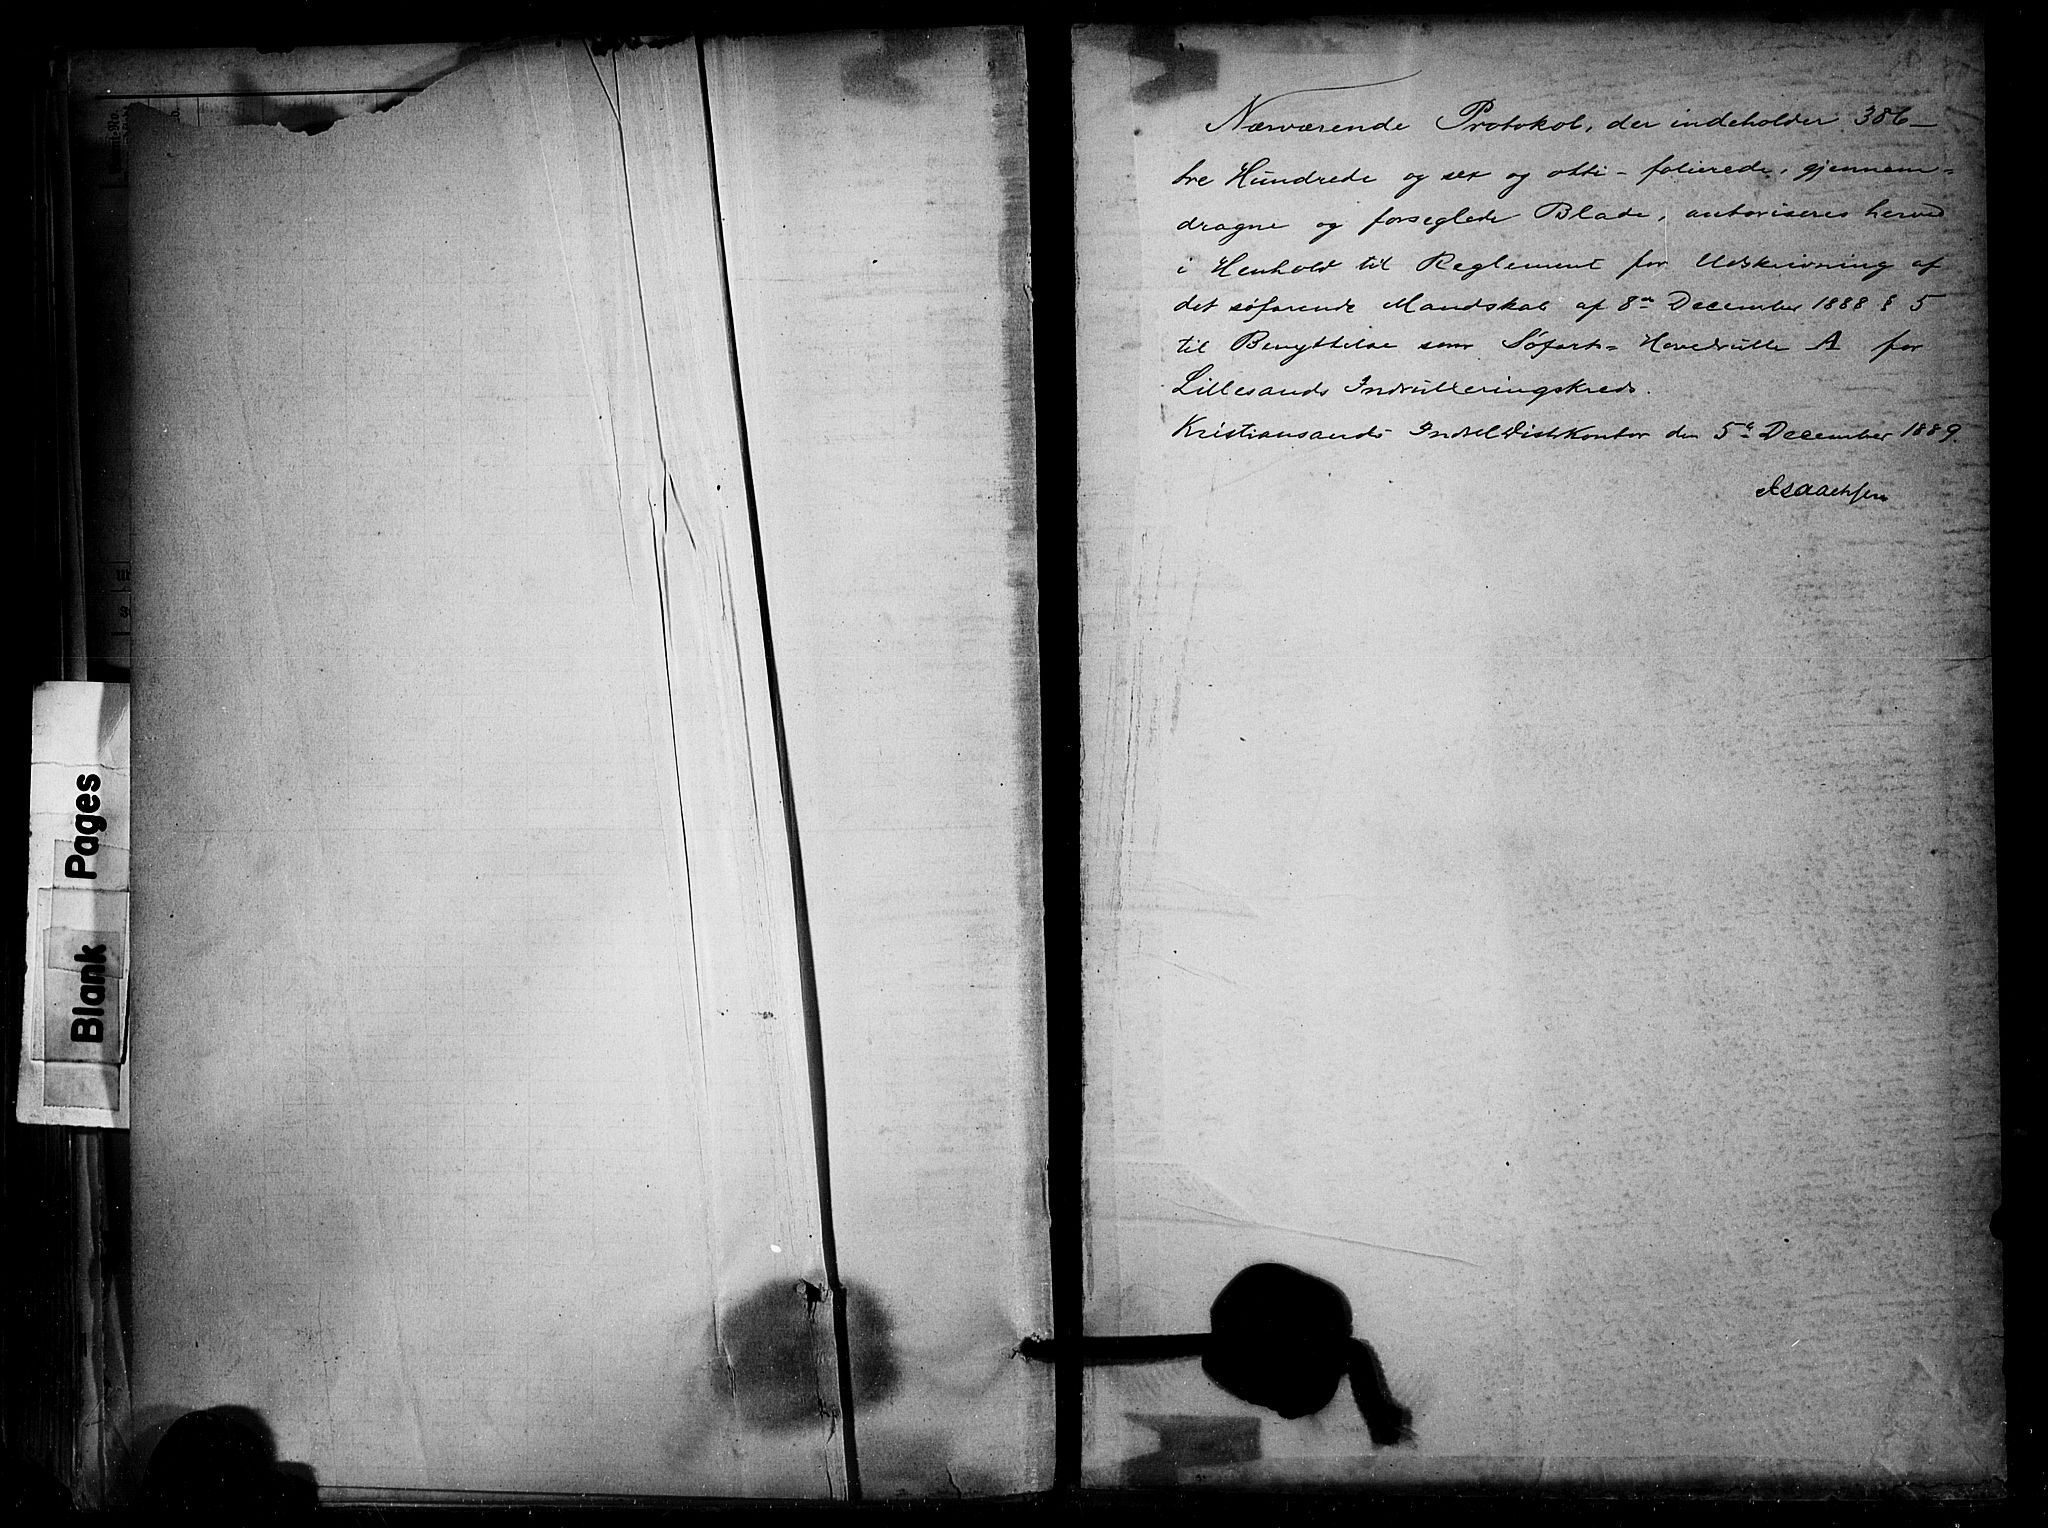 Nærværende Protokol, der indeholder 386 –
tre Hundrede og sex og otti – folierede, gjennem-
dragne og forseglede Blade, autoriseres herved
i Henhold til Reglement for Udskrivning af
det søfarende Mandskab af 8de December 1888 § 5
til Benyttelse som Søfarts-Hovedrulle A for
Lillesands Indrulleringskreds.
Kristiansands Indrul.Distr.Kontor den 5te December 1889.
Isaachsen
Blank Pages